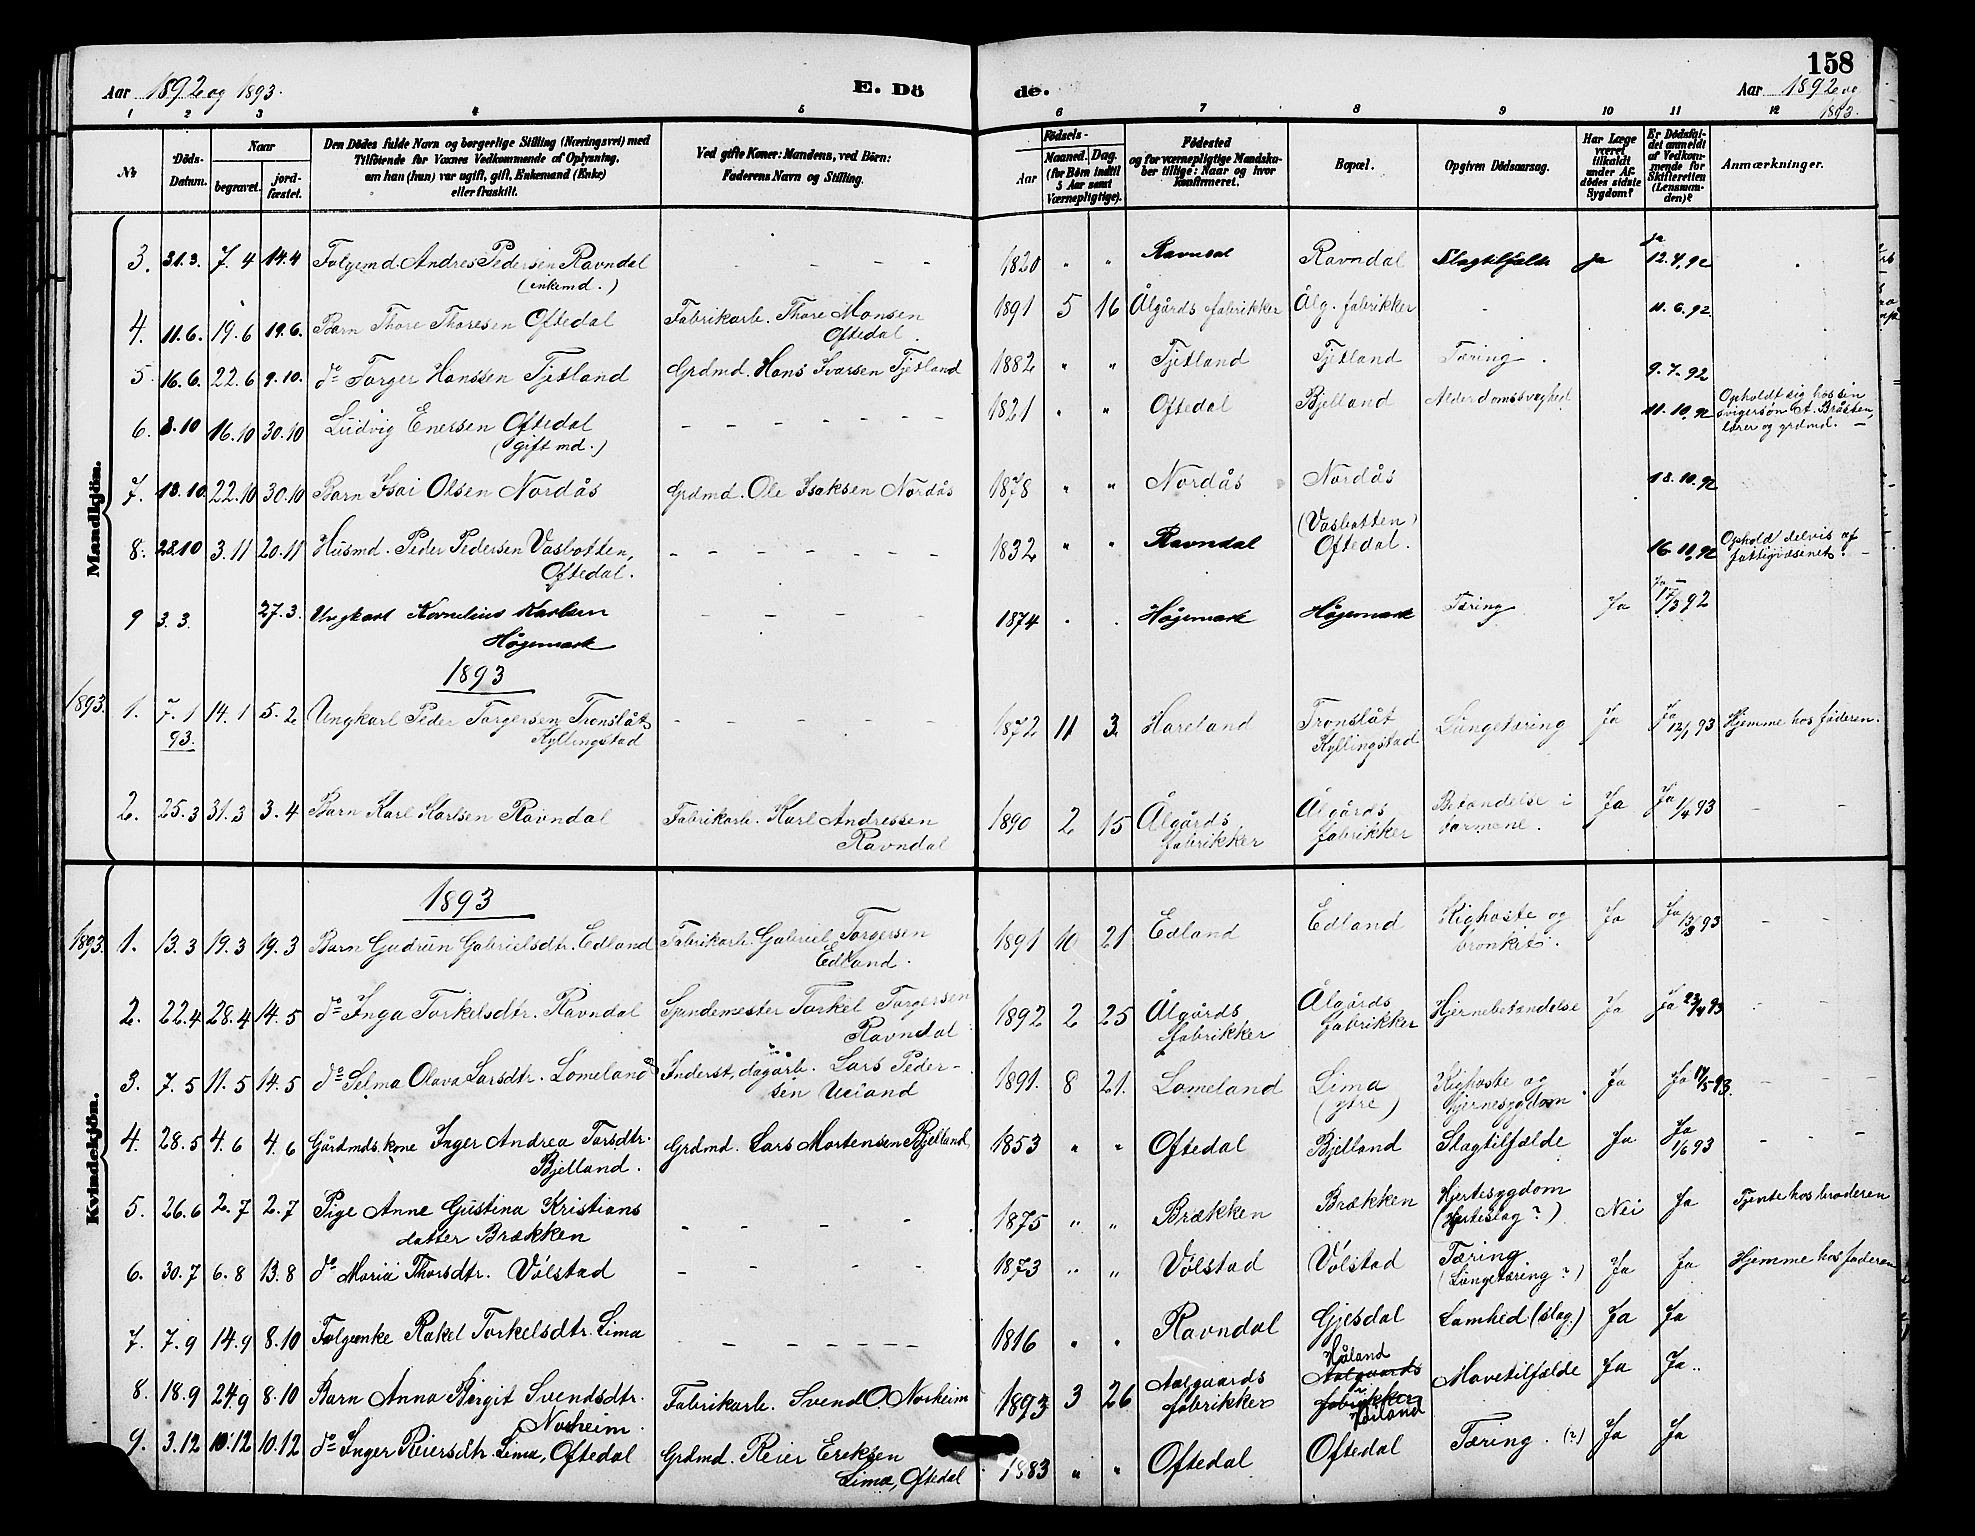 158
Aar 1892 og 1893.
E. Dö
de.
Aar 1892 og
1893.
1 2 3 4 5 6 7 8 9 10 11 12
№
Döds-Datum.
Naar
begravet.
jord-fæstet.
Den Dödes fulde Navn og borgerlige Stilling (Næringsvei) med
Tilföiende for Voxnes Vedkommende af Oplysning,
om han (hun) var ugift, gift, Enkemand (Enke)
eller fraskilt.
Ved gifte Koner: Mandens, ved Börn:
Faderens Navn og Stilling.
Födsels-
Aar
Maaned. Dag.
(for Börn indtil
5 Aar samt
Værnepligtige).
Födested
og for værnepligtige Mandska-
ber tillige: Naar og hvor
konfirmeret.
Bopæl.
Opgiven Dödsaarsag.
Har Læge
været
tilkaldt
under Af-
dödes sidste
Sygdom?
Er Dödsfal-
det anmeldt
af Vedkom-
mende for
Skifteretten
(Lensman-
den)?
Anmærkninger.
Mandkjön.
3. 31.3. 7.4 14.4 Folgemd. Andres Pedersen Ravndal (enkemd.) - - - - 1820 " " Ravndal Ravndal Slagtilfælde Ja Ja 12.4.92
4. 11.6. 19.6 19.6. Barn Thore Thoresen Oftedal Fabrikarb. Thore Monsen Oftedal. 1891 5 16 Ålgårds fabrikker Ålg. fabrikker - 11.6.92
5. 16.6. 22.6 9.10. do Torger Hanssen Tjetland Grdmd. Hans Ivarsen Tjetland 1882 " " Tjetland Tjetland Tæring. 9.7.92
6. 8.10 16.10 30.10 Ludvig Enersen Oftedal (gift md.) - - - - - 1821 " " Oftedal Bjelland Alderdomssvaghed 11.10.92 Opholdt sig hos sin
svigersøn A. Bråsten,
lærer og grdmd. -
7. 13.10. 22.10 30.10 Barn Isai Olsen Nordås Grdmd. Ole Isaksen Nordås 1878 " " Nordås Nordås 18.10.92
8. 28.10 3.11 20.11 Husmd. Peder Pedersen Vasbotten, Oftedal. - - - - - 1832 " " Ravndal (Vasbotten) Oftedal. 16.11.92 Ophold delvis af
fattigvæsenet. -
9 3.3. 27.3. Ungkarl Kornelius Karlsen Høgemark - - - - 1874 . . Høgemark Høgemark Tæring Ja Ja 17/3 92
1893
1893. 1. 7.1 93. 14.1 5.2 Ungkarl Peder Torgersen Tronslåt Kyllingstad - - - - - 1872 11 3. Hareland Tronslåt Kyllingstad Lungetæring Ja Ja 12/1 93 Hjemme hos faderen.
2. 25.3 31.3 3.4 Barn Karl Karlsen Ravndal Fabrikarb. Karl Andressen Ravndal 1890 2 15 Ålgårds fabrikker Ålgårds fabrikker Betændelse i tarmene. Ja Ja 1/4 93 - -
Kvindekjön.
1893
1893. 1. 13.3 19.3 19.3 Barn Gudrun Gabrielsdtr. Edland Fabrikarb. Gabriel Torgersen Edland. 1891 10 21 Edland Edland Kighoste og bronkit. Ja Ja 13/3 93 - -
2. 22.4 28.4 14.5 do Inga Torkelsdtr. Ravndal Spindemester Torkel Torgersen Ravndal 1892 2 25 Ålgårds fabrikker Ålgårds fabrikker Hjernebetændelse Ja Ja 23/4 93
3. 7.5 11.5 14.5 do Selma Olava Larsdtr. Lomeland Inderst, dagarb. Lars Peder-
sen Ueland 1891. 8 21. Lomeland Lima (ytre) Kighoste og Hjernesygdom. Ja Ja 17/5 93. - - -
4. 28.5 4.6 4.6 Gårdmds. kone Inger Andrea Torsdtr. Bjelland. Grdmd. Lars Mortensen Bjelland, 1853 " " Oftedal Bjelland Slagtilfælde Ja Ja 1/6 93 - - -
5. 26.6 2.7 2.7 Pige Anne Gustina Kristians
datter Brækken - - - - 1875 " " Brækken Brækken Hjertesygdom (Hjerteslag?) Nei Ja Tjente hos broderen
6. 30.7 6.8 13.8 do Maria Thorsdtr. Völstad - - - - 1873 " " Völstad Völstad Tæring (Lungetæring?) Ja Ja Hjemme hos faderen
7. 7.9 14.9 8.10 Folgenke Rakel Torkelsdtr. Lima - - - - - - 1816 " " Ravndal Gjesdal Lamhed (slag.) Ja Ja
8. 18.9 24.9 8.10 Barn Anna Birgit Svendsdtr. Norheim. Fabrikarb. Svend O. Norheim 1893 3 26 Aalgaards fabrikker Håland Aalgaards fabrikker Mavetilfælde Ja Ja.
9. 3.12 10.12 10.12 do Inger Reiersdtr. Lima, Oftedal Grdmd. Reier Eriksen Lima, Oftedal 1883 " " Oftedal Oftedal Tæring. (?) Ja Ja